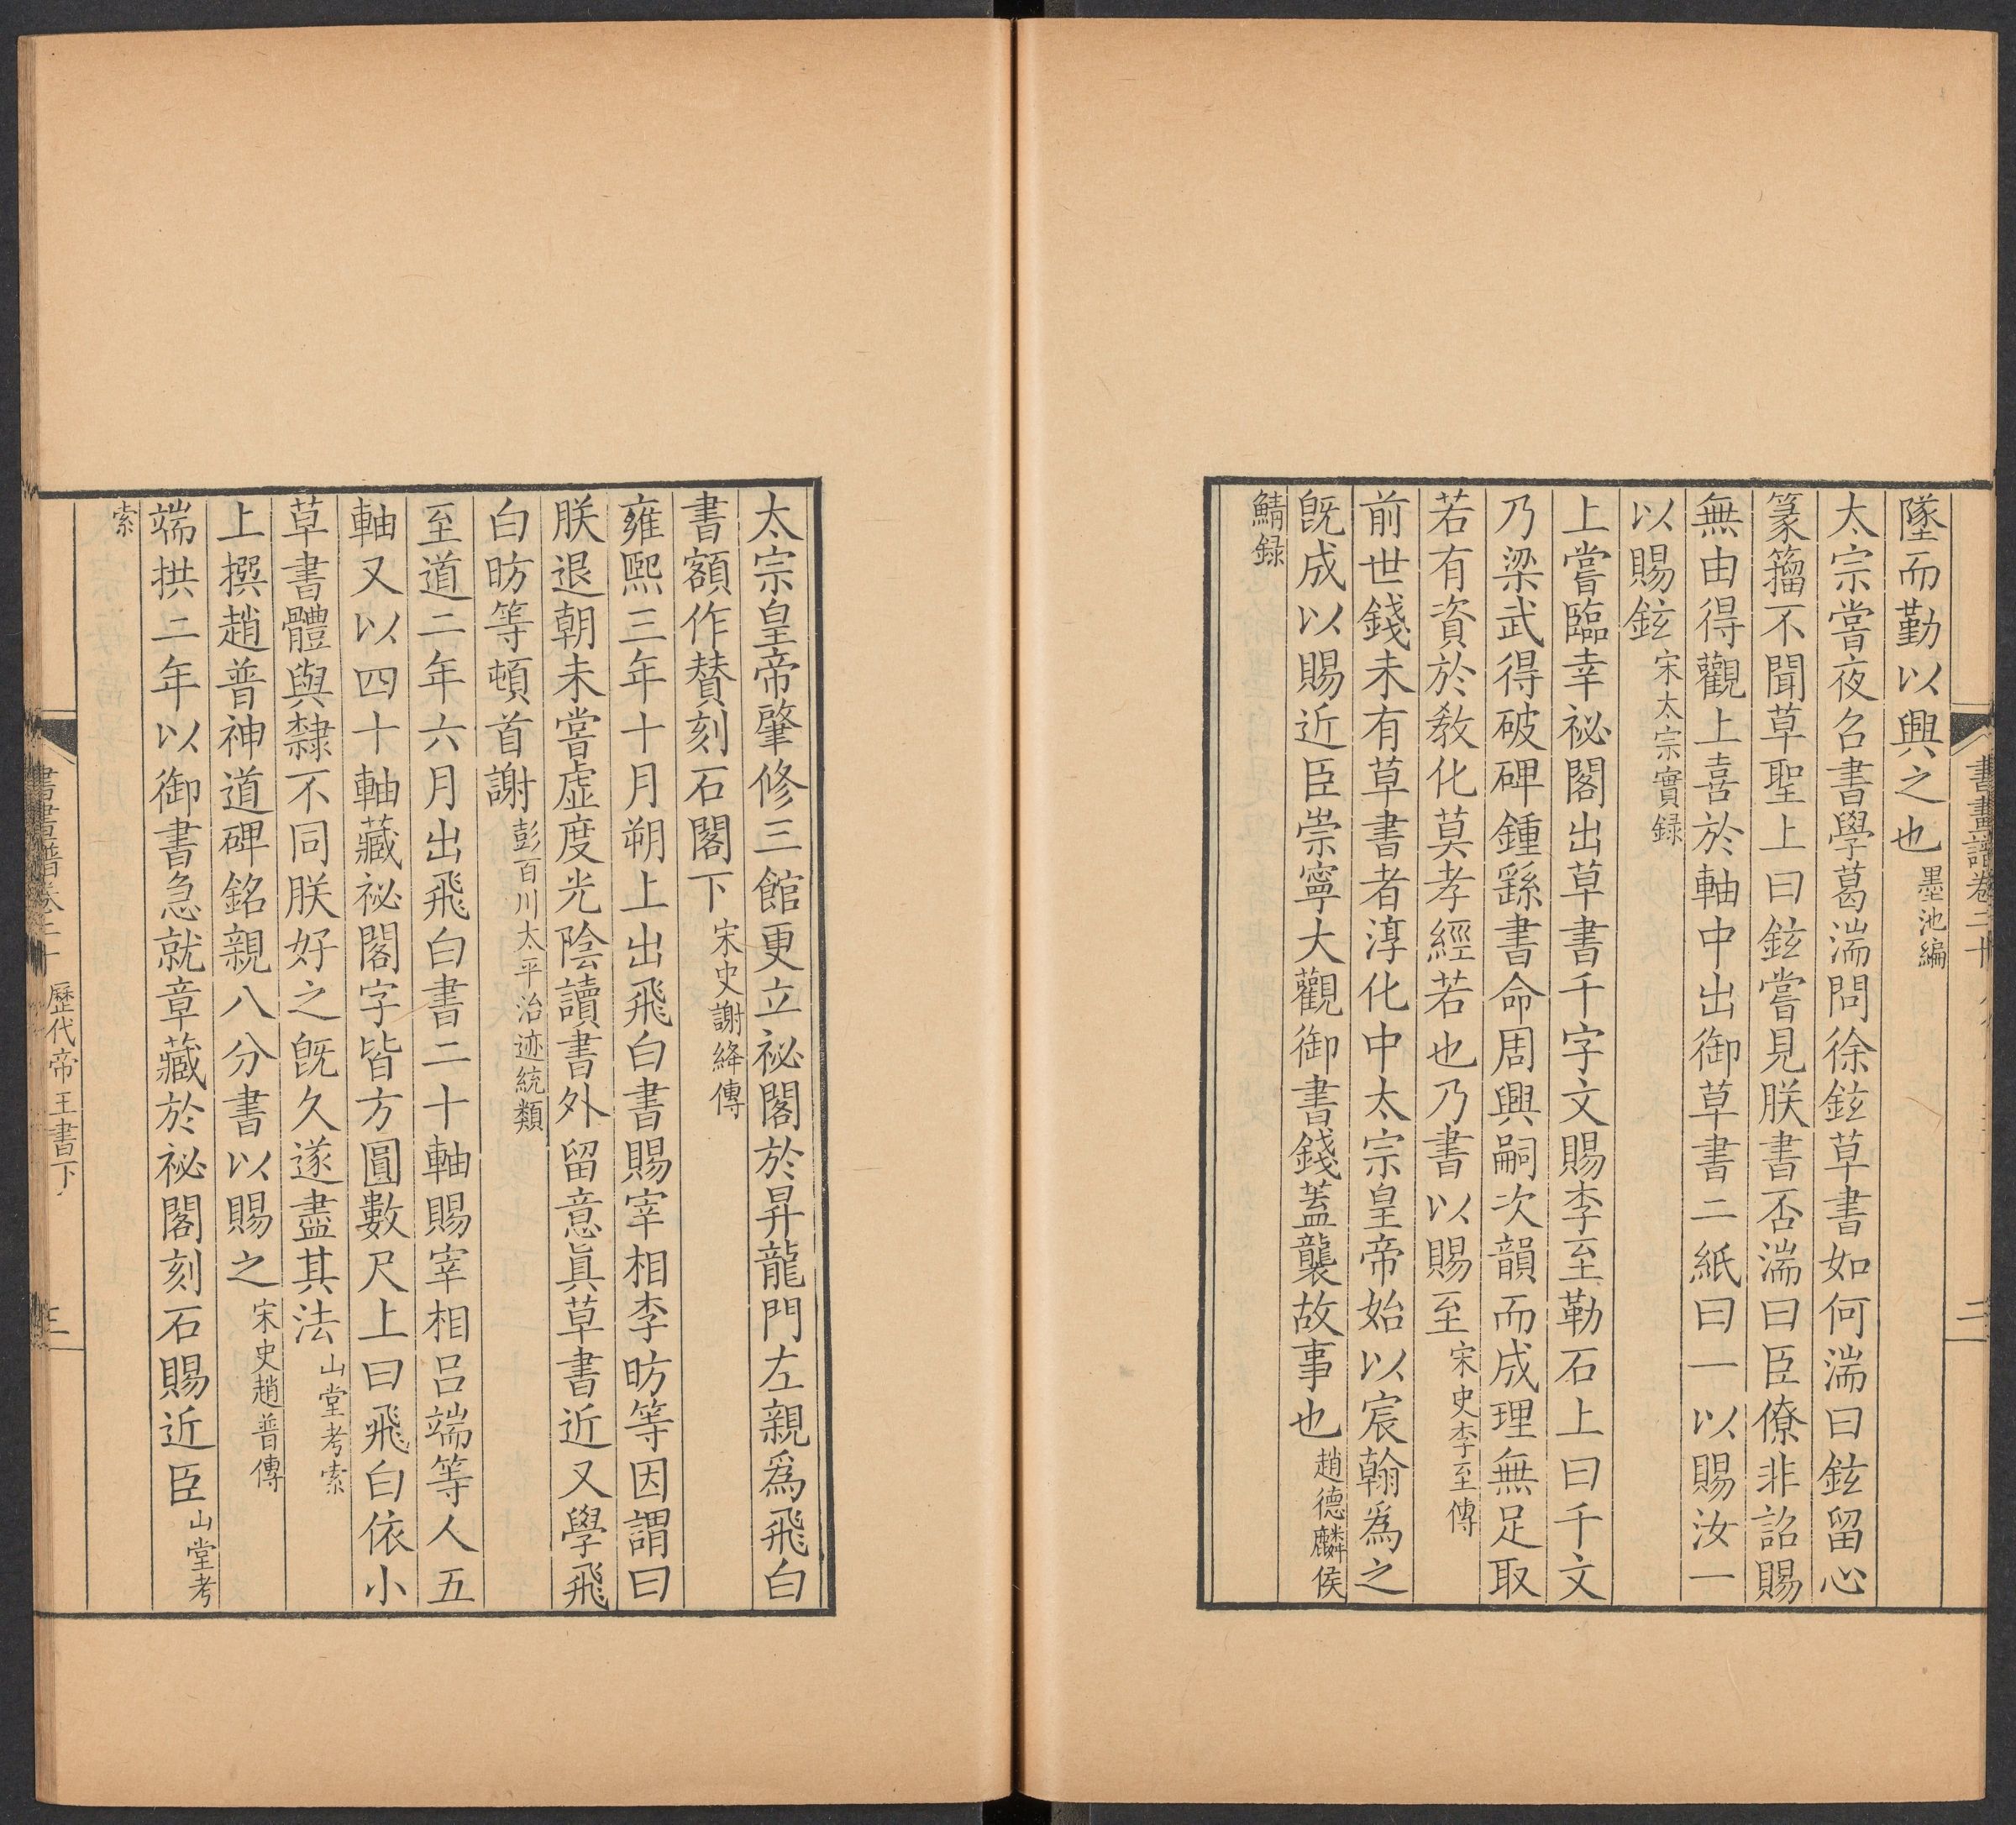 書畫譜卷二十
二
墜而勤以興之也墨池編
太宗嘗夜召書學葛湍問徐鉉草書如何湍曰鉉留心
篆籀不聞草聖上曰鉉嘗見朕書否湍曰臣僚非詔賜
無由得觀上喜於軸中出御草書二紙曰一以賜汝一
以賜鉉宋太宗實録
上嘗臨幸祕閣出草書千字文賜李至勒石上曰千文
乃梁武得破碑鍾繇書命周興嗣次韻而成理無足取
若有資於教化莫孝經若也乃書以賜至宋史李至傳
前世錢未有草書者淳化中太宗皇帝始以宸翰爲之
旣成以賜近臣崇寧大觀御書錢蓋襲故事也趙德麟侯
鯖録
太宗皇帝肇修三館更立祕閣於昇龍門左親爲飛白
書額作贊刻石閣下宋史謝絳傳
雍熙三年十月朔上出飛白書賜宰相李昉等因謂曰
朕退朝未嘗虛度光陰讀書外留意眞草書近又學飛
白昉等頓首謝彭百川太平治迹統類
至道二年六月出飛白書二十軸賜宰相呂端等人五
軸又以四十軸藏祕閣字皆方圓數尺上曰飛白依小
草書體與隸不同朕好之旣久遂盡其法山堂考索
上撰趙普神道碑銘親八分書以賜之宋史趙普傳
端拱二年以御書急就章藏於祕閣刻石賜近臣山堂考
索
書畫譜卷二十 歷代帝王書下
三